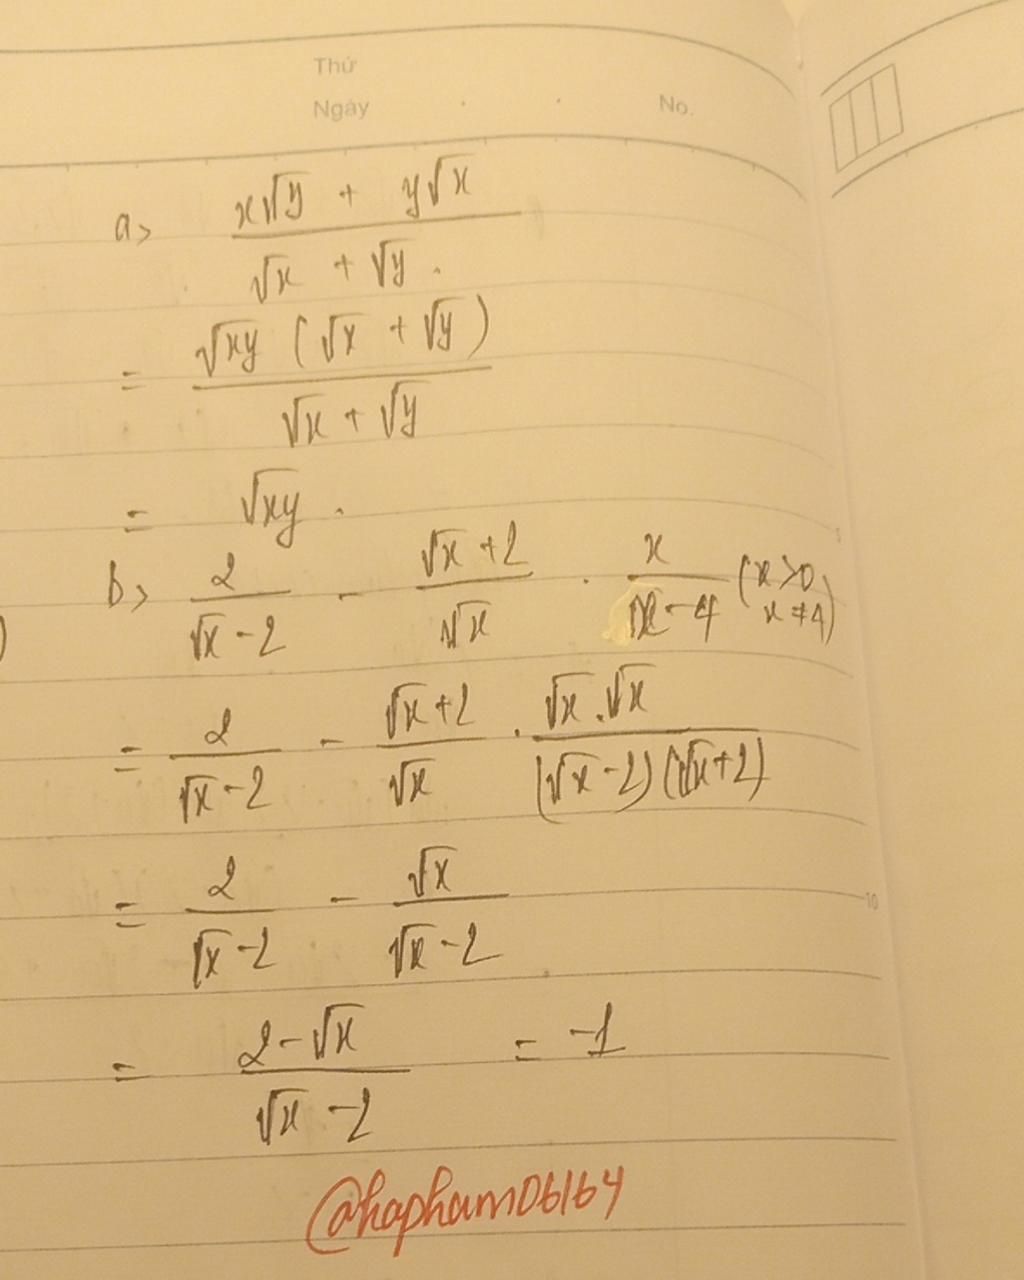 Thứ
Ngày . . No.
a> (x√y + y√x) / (√x + √y) .
= √xy (√x + √y) / (√x + √y)
= √xy .
b> 2 / (√x - 2) - (√x + 2) / √x . x / (x - 4) (x > 0 x ≠ 4)
= 2 / (√x - 2) - (√x + 2) / √x . √x . √x / (√x - 2)(√x + 2)
= 2 / (√x - 2) - √x / (√x - 2)
= (2 - √x) / (√x - 2) = -1
10
@hapham06164